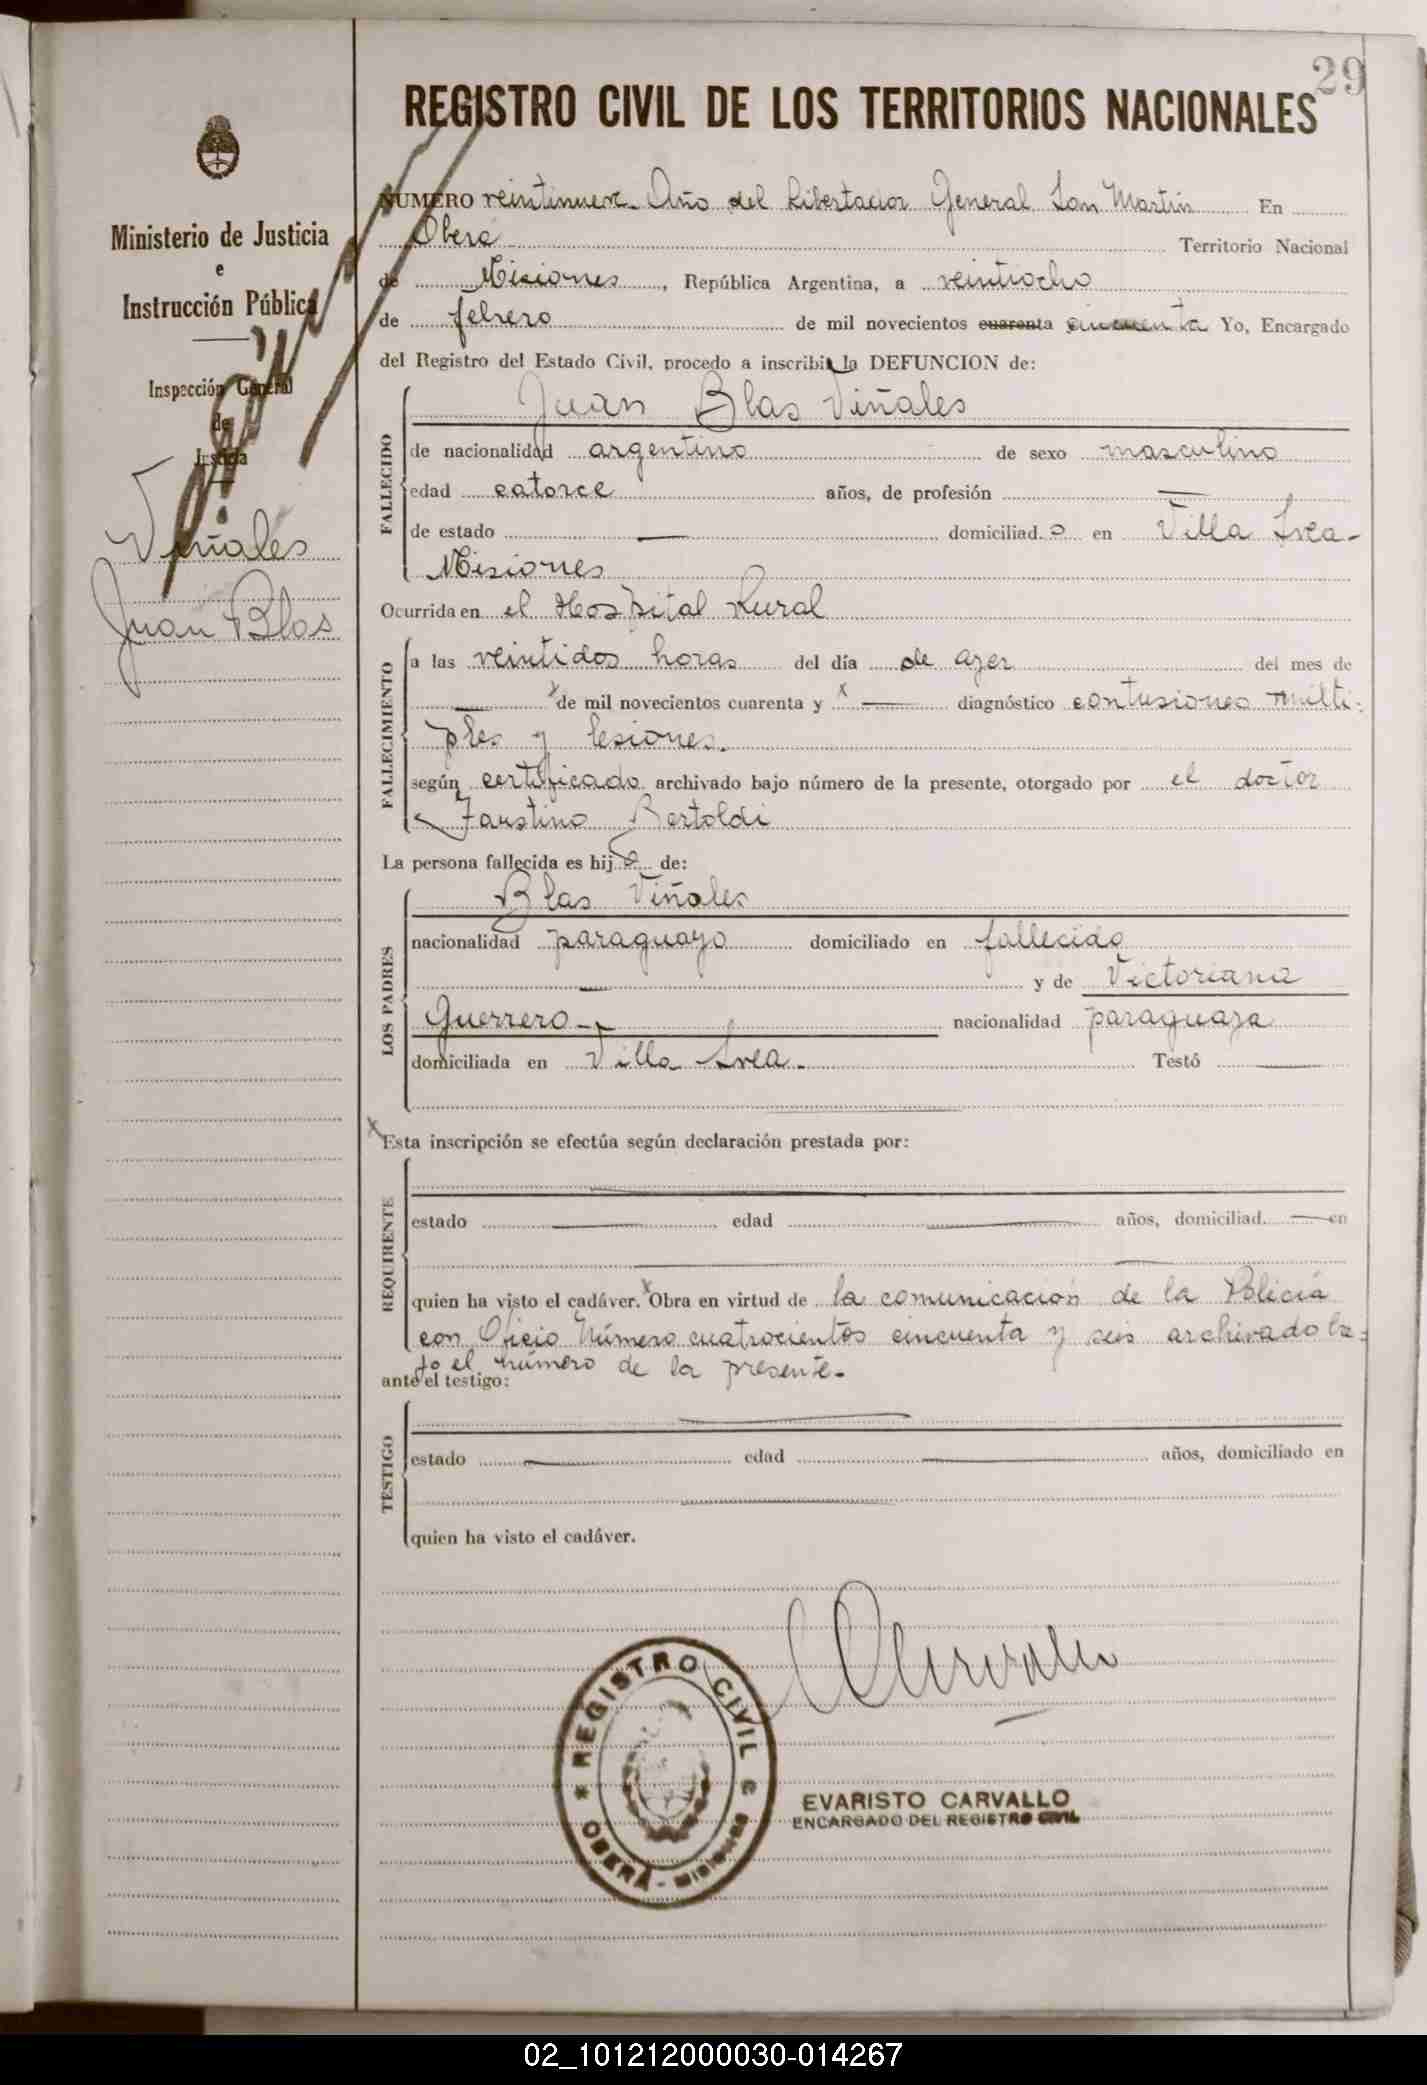 29
REGISTRO CIVIL DE LOS TERRITORIOS NACIONALES
Ministerio de Justicia
e
Instrucción Pública
Inspección General
de
Justicia
Viñales
Juan Blas
NUMERO veintinueve. Año del Libertador General San Martín En
Oberá Territorio Nacional
de Misiones, República Argentina, a veintiocho
de febrero de mil novecientos cuarenta cincuenta Yo, Encargado
del Registro del Estado Civil, procedo a inscribir la DEFUNCION de:
FALLECIDO
Juan Blas Viñales
de nacionalidad argentino de sexo masculino
edad catorce años, de profesión —
de estado — domiciliad o en Villa Svea-
Misiones
Ocurrida en el Hospital Rural
FALLECIMIENTO
a las veintidos horas del día de ayer del mes de
— x de mil novecientos cuarenta y x — diagnóstico contusiones múlti-
ples y lesiones.
según certificado archivado bajo número de la presente, otorgado por el doctor
Faustino Bertoldi
La persona fallecida es hij o de:
LOS PADRES
Blas Viñales
nacionalidad paraguayo domiciliado en fallecido
— y de Victoriana
Guerrero - nacionalidad paraguaya
domiciliada en Villa Svea. Testó —
x Esta inscripción se efectúa según declaración prestada por:
REQUIRENTE
estado — edad — años, domiciliad — en
quien ha visto el cadáver. x Obra en virtud de la comunicación de la Policía
con Oficio Número cuatrocientos cincuenta y seis archivado ba-
jo el número de la presente.
ante el testigo:
TESTIGO
estado — edad — años, domiciliado en
quien ha visto el cadáver.
Carvallo
* REGISTRO CIVIL
OBERÁ - MISIONES
EVARISTO CARVALLO
ENCARGADO DEL REGISTRO CIVIL
02_101212000030-014267